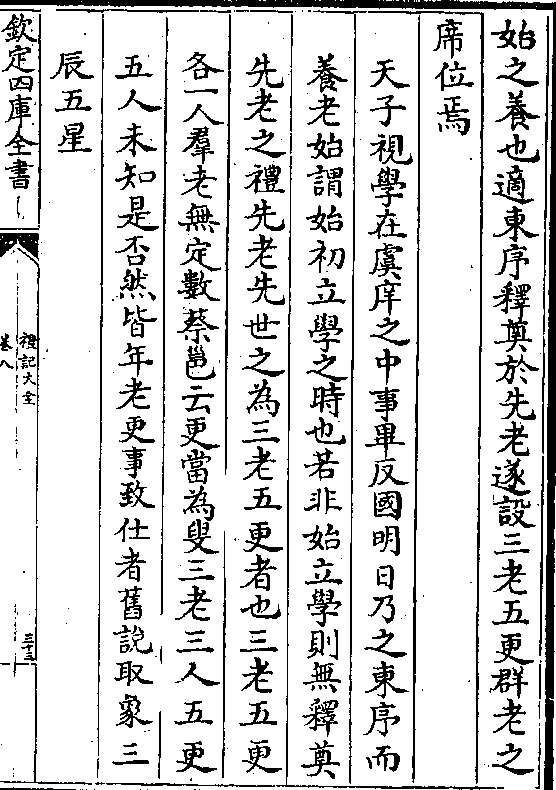 始之養也適東序釋奠於先老遂設三老五更群老之
席位焉
天子視學在虞庠之中事畢反國明日乃之東序而
養老始謂始初立學之時也若非始立學則無釋奠
先老之禮先老先世之為三老五更者也三老五更
各一人羣老無定數蔡邕云更當為叟三老三人五更
五人未知是否然皆年老更事致仕者舊說取象三
辰五星
欽定四庫全書
禮記大全
卷八
三十三